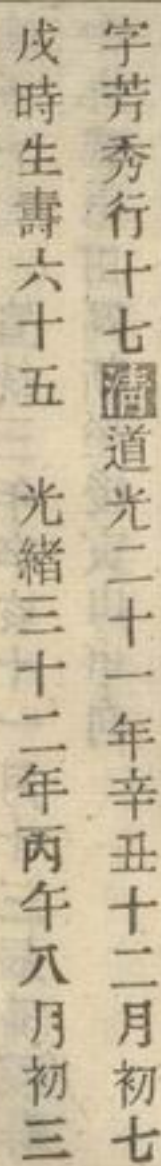 字芳秀行十七清道光二十一年辛丑十二月初七
戌時生壽六十五　光緒三十二年丙午八月初三